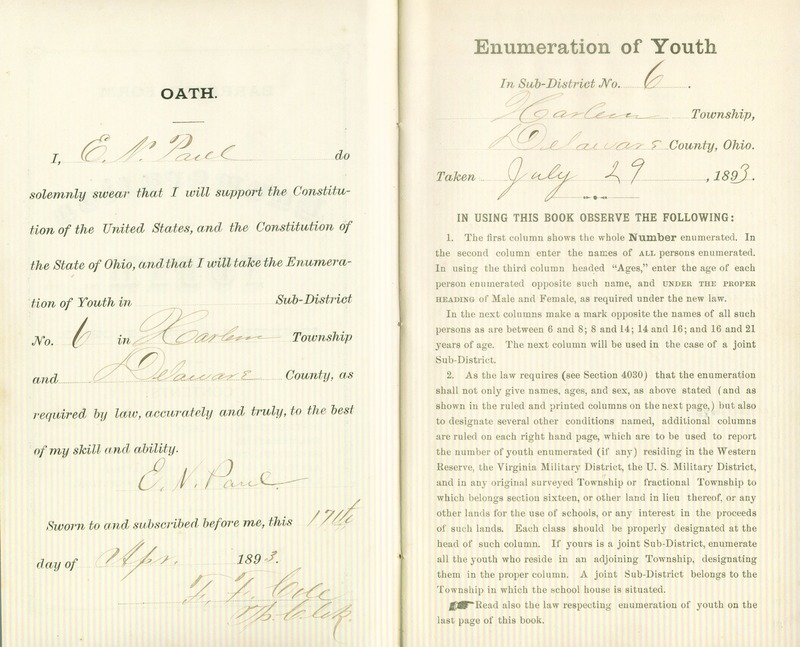 OATH.
I, E. N. Paul do
solemnly swear that I will support the Constitu-
tion of the United States, and the Constitution of
the State of Ohio, and that I will take the Enumera-
tion of Youth in Sub-District
No. 6 in Harlem Township
and Delaware County, as
required by law, accurately and truly, to the best
of my skill and ability.
E. N. Paul.
Sworn to and subscribed before me, this 17th
day of Apr. 1893.
F. F. Cole
Tp. Clek.
Enumeration of Youth
In Sub-District No. 6.
Harlem Township,
Delaware County, Ohio.
Taken July 29, 1893.
IN USING THIS BOOK OBSERVE THE FOLLOWING:
1. The first column shows the whole Number enumerated. In
the second column enter the names of ALL persons enumerated.
In using the third column headed "Ages," enter the age of each
person enumerated opposite such name, and UNDER THE PROPER
HEADING of Male and Female, as required under the new law.
In the next columns make a mark opposite the names of all such
persons as are between 6 and 8; 8 and 14; 14 and 16; and 16 and 21
years of age. The next column will be used in the case of a joint
Sub-District.
2. As the law requires (see Section 4030) that the enumeration
shall not only give names, ages, and sex, as above stated (and as
shown in the ruled and printed columns on the next page,) but also
to designate several other conditions named, additional columns
are ruled on each right hand page, which are to be used to report
the number of youth enumerated (if any) residing in the Western
Reserve, the Virginia Military District, the U. S. Military District,
and in any original surveyed Township or fractional Township to
which belongs section sixteen, or other land in lieu thereof, or any
other lands for the use of schools, or any interest in the proceeds
of such lands. Each class should be properly designated at the
head of such column. If yours is a joint Sub-District, enumerate
all the youth who reside in an adjoining Township, designating
them in the proper column. A joint Sub-District belongs to the
Township in which the school house is situated.
Read also the law respecting enumeration of youth on the
last page of this book.